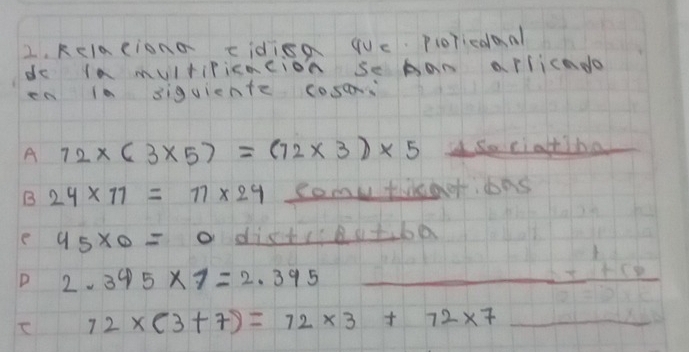 2. Relaciona cidisa que propiedad
de la multiplicacion se han aplicado
en la siguiente cosa:
A 72 x (3 x 5) = (72 x 3) x 5 Asociatiba
B 24 x 77 = 77 x 24 comuticatibas
C 45 x 0 = 0 distributiba
D 2.395 x 7 = 2.395
72 x (3 + 7) = 72 x 3 + 72 x 7